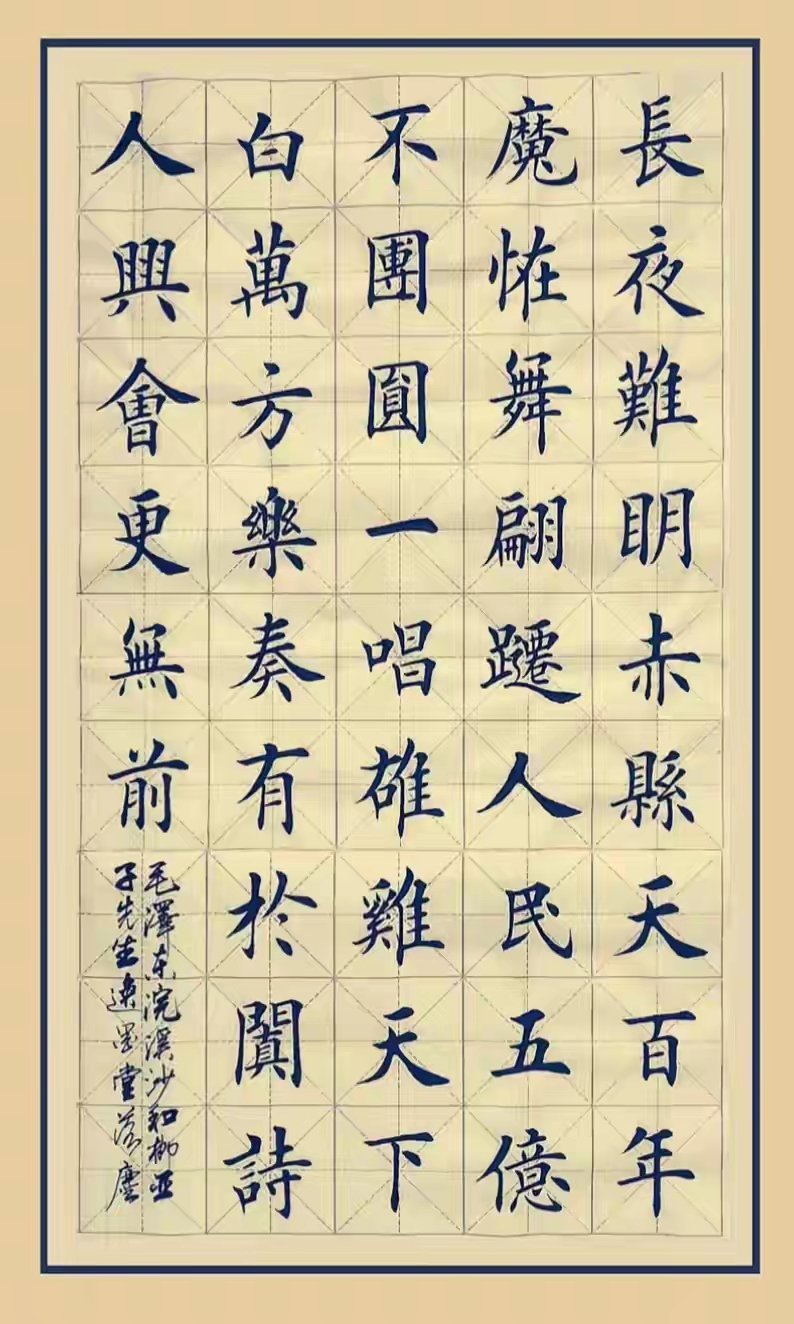 長夜難眀赤縣天百年
魔恠舞翩躚人民五億
不團圓一唱雄雞天下
白萬方樂奏有於闐詩
人興會更無前
毛澤东浣溪沙和柳亞
子先生